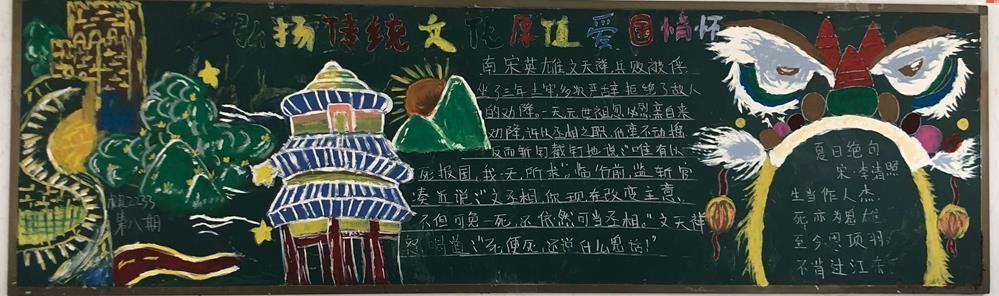 弘扬传统文化厚植爱国情怀
南宋英雄文天祥兵败被俘,
坐了三年土牢,多次严辞拒绝了故人
的劝降。一天元世祖忽必烈亲自来
劝降,许以丞相之职,他毫不动摇
反而斩钉截铁地说:“唯有以
死报国,我一无所求”。临刑前,监斩官
凑近说:“文丞相,你现在改变主意,
不但可免一死,还依然可当丞相。”文天祥
道:“死便死,还说什么鬼话!”
夏日绝句
宋·李清照
生当作人杰,
死亦为鬼雄
至今思项羽
不肯过江东
2233
第八期